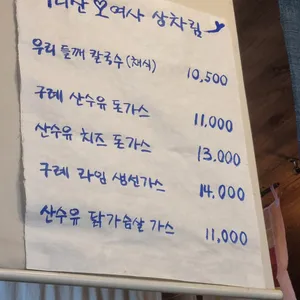 지리산 오여사 상차림
우리 들깨 칼국수 (채식) 10,500
구례 산수유 돈가스 11,000
산수유 치즈 돈가스 13.000
구례 라임 생선가스 14,000
산수유 닭가슴살 가스 11,000